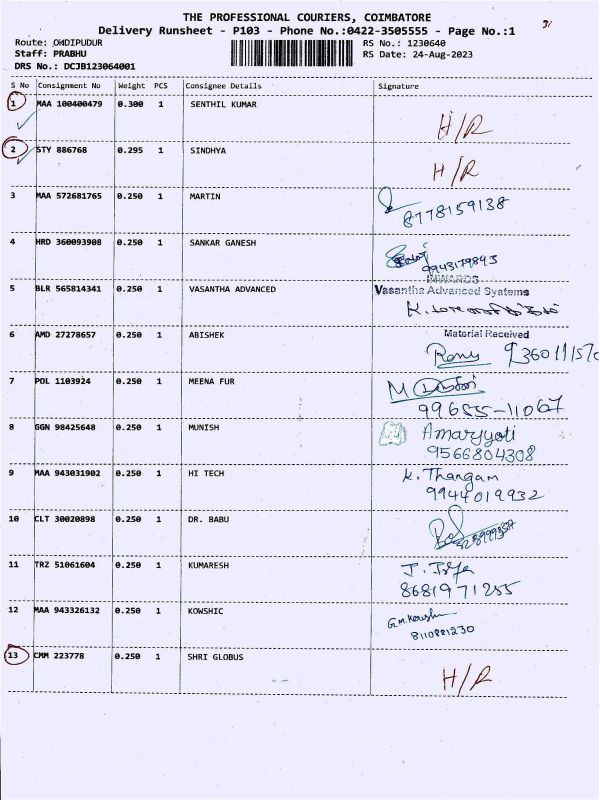 THE PROFESSIONAL COURIERS, COIMBATORE
Delivery Runsheet - P103 - Phone No.:0422-3505555 - Page No.:1
Route: ONDIPUDUR RS No.: 1230640
Staff: PRABHU RS Date: 24-Aug-2023
DRS No.: DCJB123064001
S No Consignment No Weight PCS Consignee Details Signature
1 MAA 100400479 0.300 1 SENTHIL KUMAR
H/R
2 STY 886768 0.295 1 SINDHYA
H/R
3 MAA 572681765 0.250 1 MARTIN
8778159138
4 HRD 360093908 0.250 1 SANKAR GANESH
9943179893
INWARDS
5 BLR 565814341 0.250 1 VASANTHA ADVANCED Vasantha Advanced Systems
6 AMD 27278657 0.250 1 ABISHEK Material Received
7 POL 1103924 0.250 1 MEENA FUR
99655-11067
8 GGN 98425648 0.250 1 MUNISH Amarjyoti
9566804308
9 MAA 943031902 0.250 1 HI TECH K. Thangam
9944019932
10 CLT 30020898 0.250 1 DR. BABU
11 TRZ 51061604 0.250 1 KUMARESH
8681971255
12 MAA 943326132 0.250 1 KOWSHIC
8110881230
13 CMM 223778 0.250 1 SHRI GLOBUS
H/R